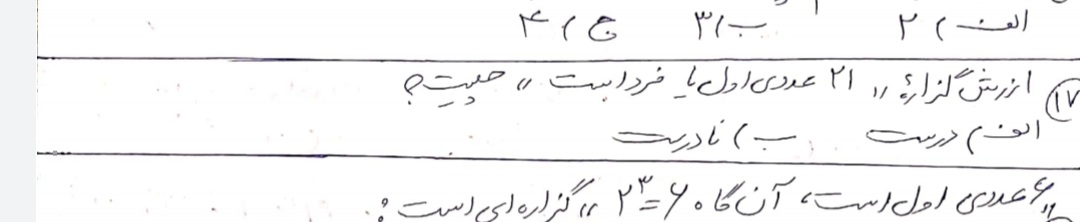 الف) ۲ ب) ۳ ج) ۴
۱۷) ارزش گزارهٔ «۲۱ عددی اول یا فرد است» چیست؟
الف) درست ب) نادرست
«۶ عددی اول است، آن گاه ۶=۲^۳» گزاره ای است: